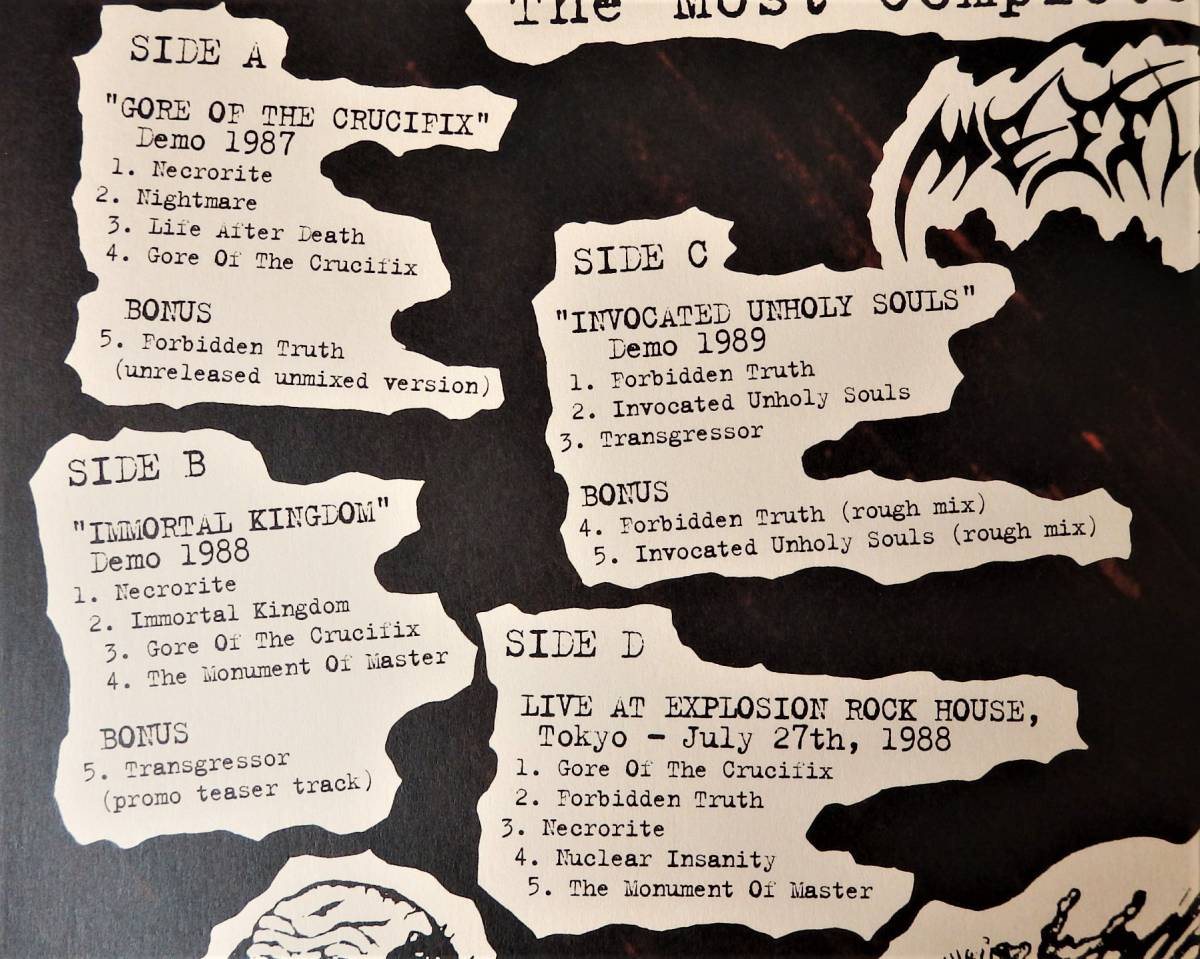 The Most Complete
SIDE A
"GORE OF THE CRUCIFIX"
Demo 1987
1. Necrorite
2. Nightmare
3. Life After Death
4. Gore Of The Crucifix
BONUS
5. Forbidden Truth
(unreleased unmixed version)
SIDE B
"IMMORTAL KINGDOM"
Demo 1988
1. Necrorite
2. Immortal Kingdom
3. Gore Of The Crucifix
4. The Monument Of Master
BONUS
5. Transgressor
(promo teaser track)
SIDE C
"INVOCATED UNHOLY SOULS"
Demo 1989
1. Forbidden Truth
2. Invocated Unholy Souls
3. Transgressor
BONUS
4. Forbidden Truth (rough mix)
5. Invocated Unholy Souls (rough mix)
SIDE D
LIVE AT EXPLOSION ROCK HOUSE,
Tokyo - July 27th, 1988
1. Gore Of The Crucifix
2. Forbidden Truth
3. Necrorite
4. Nuclear Insanity
5. The Monument Of Master